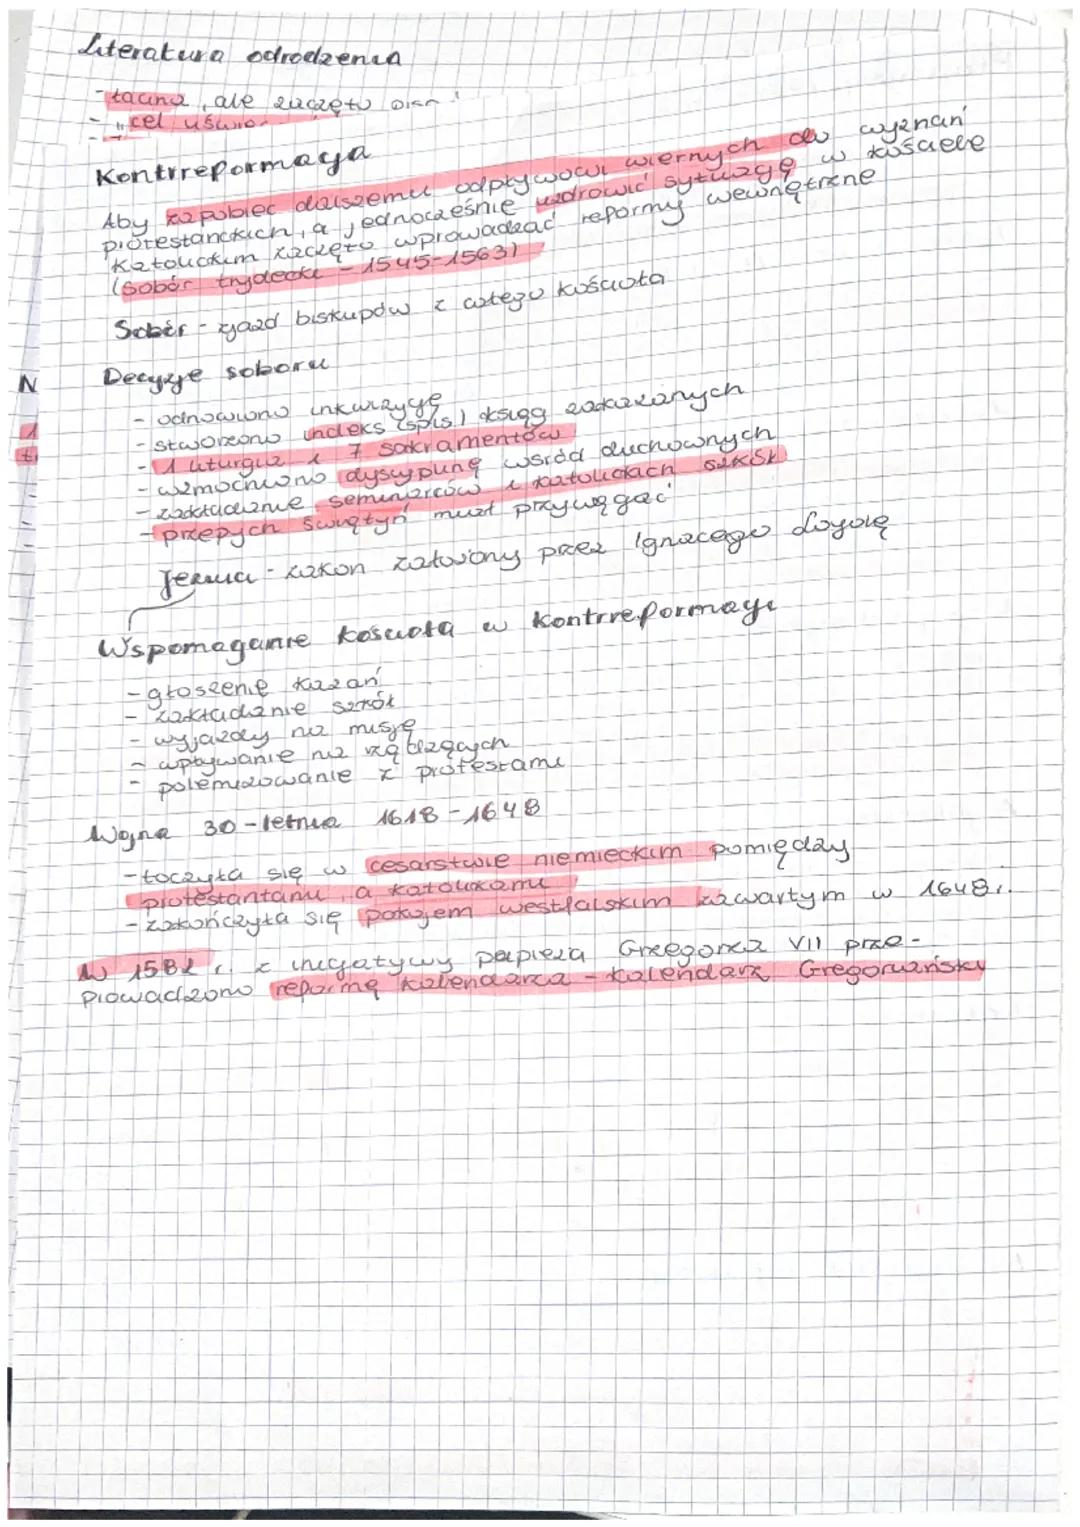 Literatura odrodzenia
- łacina, ale zaczęto
- "cel
Kontrreformacja
Aby zapobiec dalszemu odpływowi wiernych do wyznań
protestanckich, a jednocześnie uzdrowić sytuację w kościele
Katolickim zaczęto wprowadzać reformy wewnętrzne
(Sobór trydecki - 1545-1563)
Sobór - zjazd biskupów z całego kościoła
Decyzje soboru
- odnowiono inkwizycję
- stworzono indeks (spis) ksiąg zakazanych
- 1 liturgia i 7 sakramentów
- wzmocniono dyscyplinę wśród duchownych
- zakładanie seminariów i katolickich szkół
- przepych świątyń miał przyciągać
Jezuici - zakon założony przez Ignacego Loyolę
Wspomaganie kościoła w kontrreformacji
- głoszenie kazań
- zakładanie szkół
- wyjazdy na misje
- wpływanie na rządzących
- polemizowanie z protestami
Wojna 30-letnia 1618-1648
- toczyła się w cesarstwie niemieckim pomiędzy
protestantami, a katolikami
- zakończyła się pokojem westfalskim zawartym w 1648r.
W 1582 r. z inicjatywy papieża Grzegorza VII prze-
prowadzono reformę kalendarza - kalendarz Gregoriański
N
1